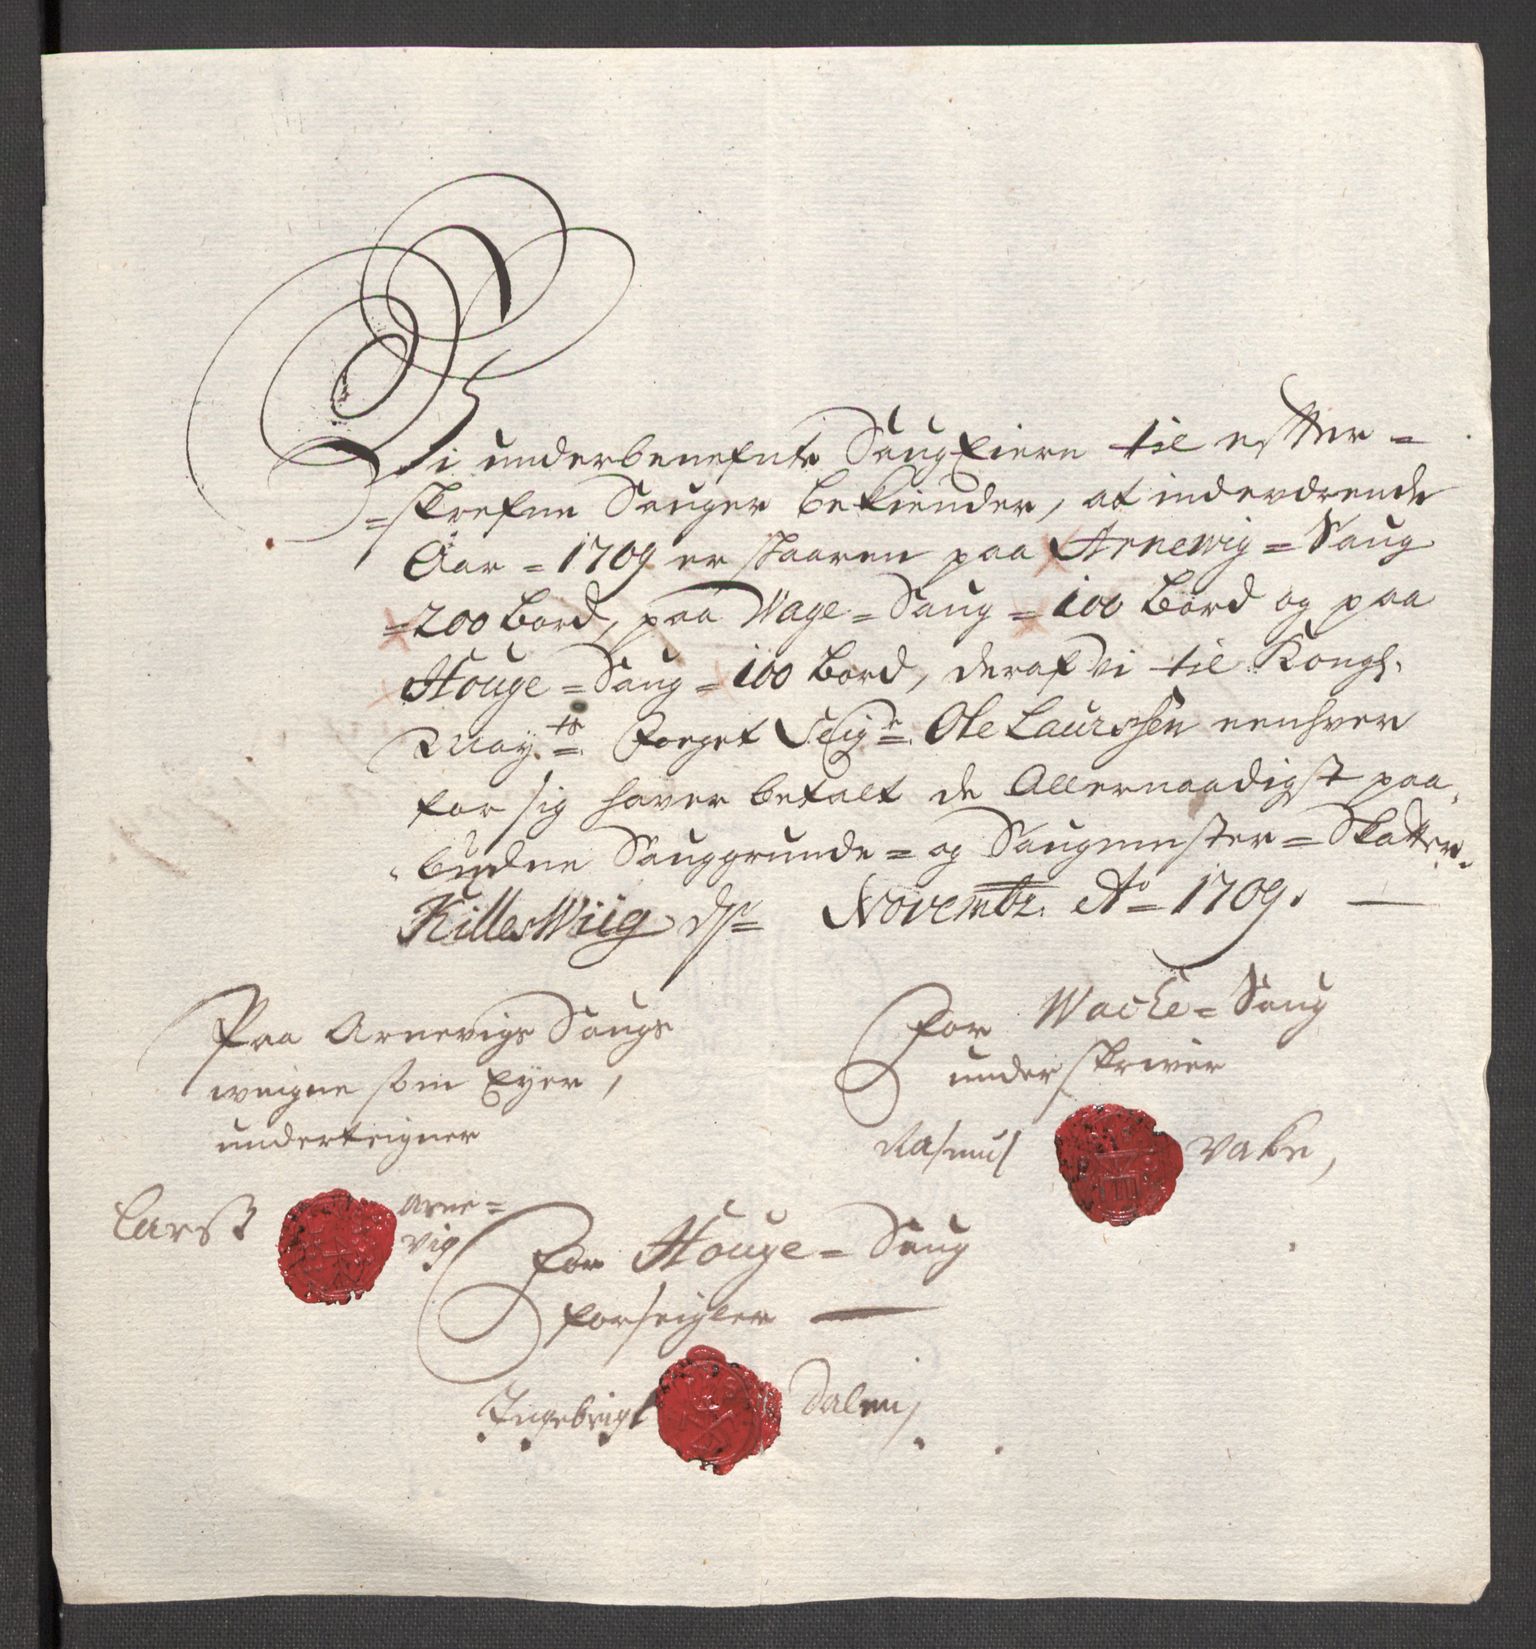 Vi underbenefnte Saug Eiern til efter-
=skrefne Sauger bekiender, at indeværende
Aar = 1709 er skaaren paa Arnewig = Saug
=200 Bord, paa Wage = Saug = 100 Bord og paa
Houge = Saug = 100 Bord, deraf vi til Kongl.
May.ts Foeget Seig.r Ole Laurssen eenhver
for sig haver betalt de Allernaadigst paa-
budne Sauggrunde = og Saugmester = Skatter.
KillesWiig ds Novembr. Ao 1709.
Paa Arnevigs Saugs
weigne som Eyer,
underteigner
Larss Arne=
vig
For Wacke = Saug
underskriver
Rasmus Vake,
For Houge = Saug
forseigler
Ingebrigt Dalen,